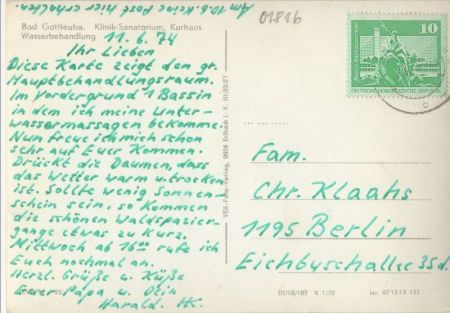 Am 10.6. keine Post hier erhalten.
01816
Bad Gottleuba. Klinik-Sanatorium, Kurhaus
Wasserbehandlung 11.6.74
Ihr Lieben
Diese Karte zeigt den gr.
Hauptbehandlungsraum.
Im Vordergrund 1 Bassin
in dem ich meine Unter-
wassermassagen bekomme.
Nun freue ich mich schon
sehr auf Euer Kommen.
Drückt die Daumen, dass
das Wetter warm u. trocken
ist. Sollte wenig Sonnen-
schein sein, so kommen
die schönen Waldspazier-
gänge etwas zu kurz.
Mittwoch ab 16°° rufe ich
Euch nochmal an.
Herzl. Grüße u. Küße
Euer Papa u. Dein
Harald. HK.
VEB-Foto-Verlag, 9934 Erlbach i. V. III/23/27
10
DEUTSCHE DEMOKRATISCHE REPUBLIK
c
Fam.
Chr. Klaahs
1195 Berlin
Eichbuschallee 35d.
III/18/197 K 1/73 Nr. 071213 137